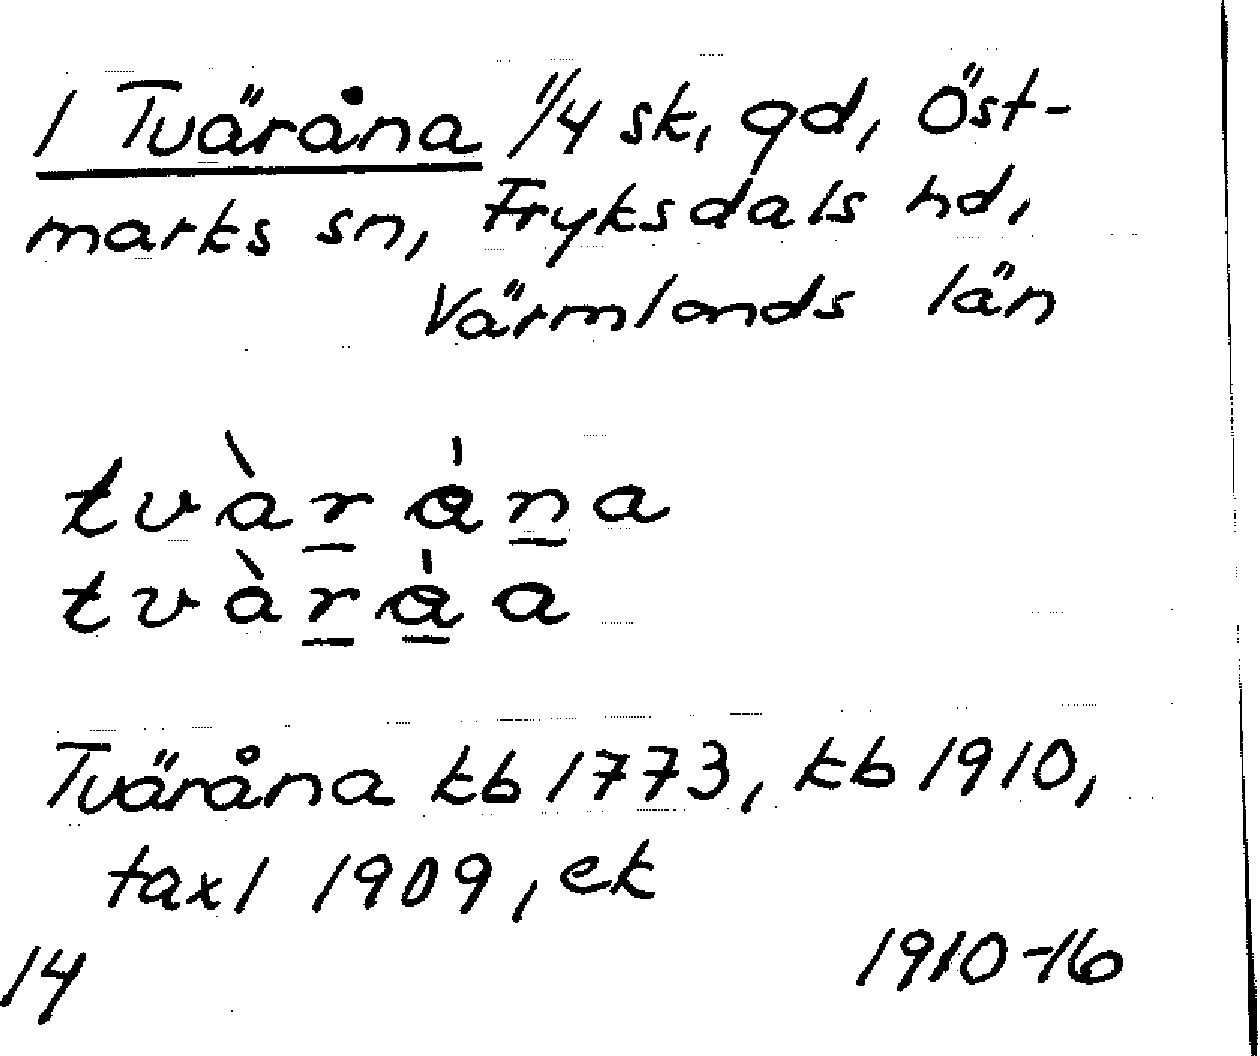 1 Tväråna 1/4 sk, gd, Öst-
marks sn, Fryksdals hd,
Värmlands län
tvàråna
tvàråa
Tväråna kb 1773, kb 1910,
taxl 1909, ek
1910-16
14